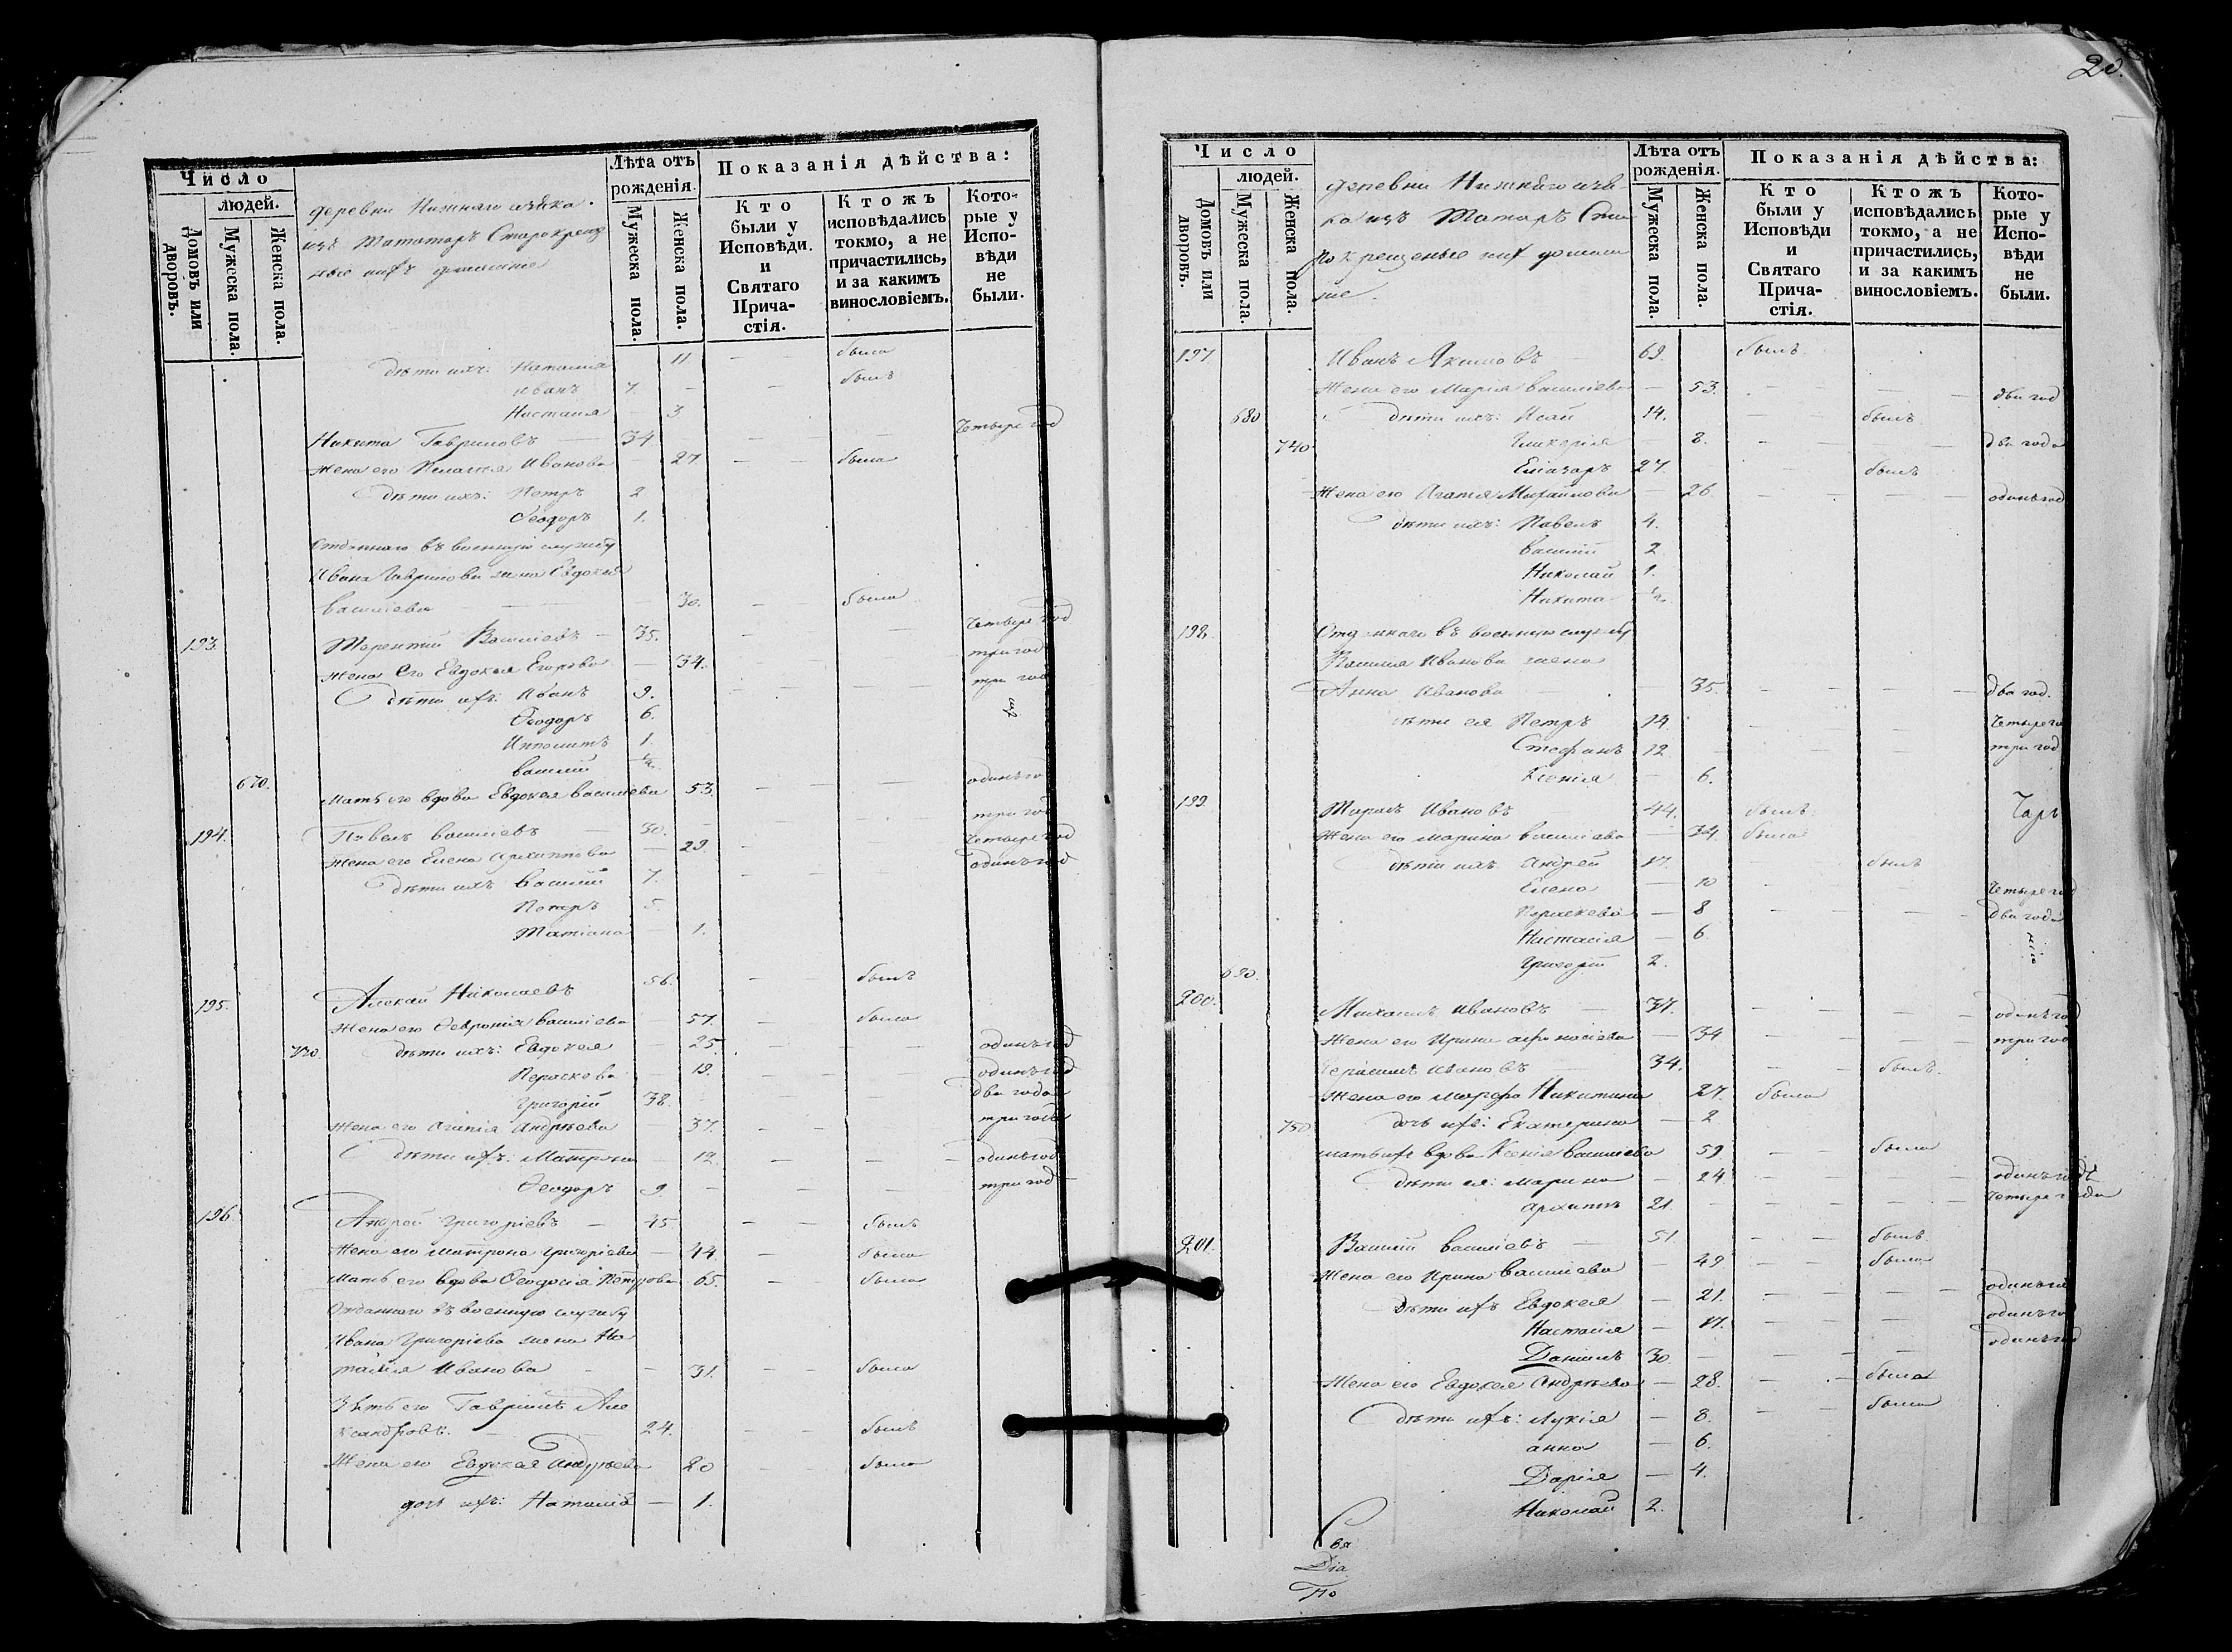 Число
людей.
Домовъ или дворовъ.
Мужеска пола.
Женска пола.
деревни Нижняго
изъ Татаръ Старокрещ
Лѣта отъ рожденія.
Мужеска пола.
Женска пола.
Показанія дѣйства:
Кто были у Исповѣди. и Святаго Прича-стія.
Ктожъ исповѣдались токмо, а не причастились, и за какимъ винословіемъ.
Кото-рые у Испо-вѣди не были.
дѣти ихъ: Наталія 11. — — была
Иванъ 7. — — былъ
Настасія — 3
Никита Гавриловъ — 34 — — четыре год
жена его Пелагея Иванова — 27. — — была
дѣти ихъ: Петръ 2
Ѳеодоръ 1.
Отданнаго въ военную службу
Ивана Гаврилова жена Евдокея
Василіева — 30. — была
193. Терентій Василіевъ — 35. — — четыре год
жена его Евдокея Егорова — 34. — — три год
дѣти ихъ: Иванъ 9. — — три год
Ѳеодоръ 6.
Ипполитъ 1.
Василій ½
670. мать его вдова Евдокея Василіева 53. — — одинъ го
194. Павелъ Василіевъ — 30. — — три го
жена его Елена Архиппова — 29. — четыре год
дѣти ихъ Василій 7. — — одинъ год
Петръ 5.
Татіана — 1.
195. Алексѣй Николаевъ 56. — былъ
жена его Ѳевронія Василіева — 57. — была
730. дѣти ихъ: Евдокея — 25. — — одинъ год
Параскева — 19. — — одинъ год
Григорій 38. — — два года
жена его Агапія Андрѣева — 37. — — три года
дѣти ихъ: Матрона — 12. — — одинъ год
Ѳеодоръ 9. — — три год
196. Андрей Григоріевъ — 45. — — былъ
жена его Матрона Григоріева — 44. — была
мать его вдова Ѳеодосія Петрова 65. — была
Отданнаго въ военную службу
Ивана Григоріева жена На
талія Иванова — — 31. — — была
Зять его Гавріилъ Але
ксандровъ. 24. — — былъ
Жена его Евдокея Андрѣева 20 — — была
дочь ихъ: Наталія — 1.
20.
Число
людей.
Домовъ или дворовъ.
Мужеска пола.
Женска пола.
деревни Нижняго
изъ Татаръ Ста
рокрещеные ихъ домаш
ніе.
Лѣта отъ рожденія.
Мужеска пола.
Женска пола.
Показанія дѣйства:
Кто были у Исповѣди и Святаго Прича-стія.
Ктожъ исповѣдались токмо, а не причастились, и за какимъ винословіемъ.
Кото-рые у Испо-вѣди не были.
197. Иванъ Якимовъ 69. былъ
жена его Марія Василіева — 53. — — два год
680 дѣти ихъ: Исай 14. — — былъ
740 Гликерія — 8. — — два года
Еліазаръ 27. — былъ
жена его Агапія Михайлова — 26. — — одинъ год
дѣти ихъ: Павелъ 4.
Василій 2
Николай 1.
Никита ½
198. Отданнаго въ военную службу
Василія Иванова жена
Анна Иванова — 35. — — два год.
дѣти ея Петръ 14. — — четыре го
Стефанъ 12 — — три год
Ксенія — 6.
199. Ивановъ 44. былъ
Царь
жена его Марина Василіева — 34. была
дѣти ихъ Андрей 17. — былъ
Елена — 10 четыре год
Параскева — 8 — — два года
Настасія — 6
690. Григорій 2.
200. Михаилъ Ивановъ — 37. — — одинъ год
жена его Ирина Афанасіева — 34 — — три год
Герасимъ Ивановъ 34. — — былъ.
жена его Марфа Никитина 27. была
750 дочь ихъ: Екатерина — 2
мать ихъ вдова Ксенія Василіева 59 — — была
дѣти ея: Марина — 24. — — одинъ годъ
Архиппъ 21. — — четыре года
201. Василій Василіевъ — 51 — — былъ
жена его Ирина Василіева — 49 — — была
дѣти ихъ Евдокея — 21. — — одинъ го
Настасія — 17. — — одинъ год
Даніилъ 30 — — одинъ год
Жена его Евдокея Андрѣева — 28. — — была
дѣти ихъ: Лукія — 8. — — была
анна — 6.
Дарія — 4.
Николай 2.
Свя
Діа
По